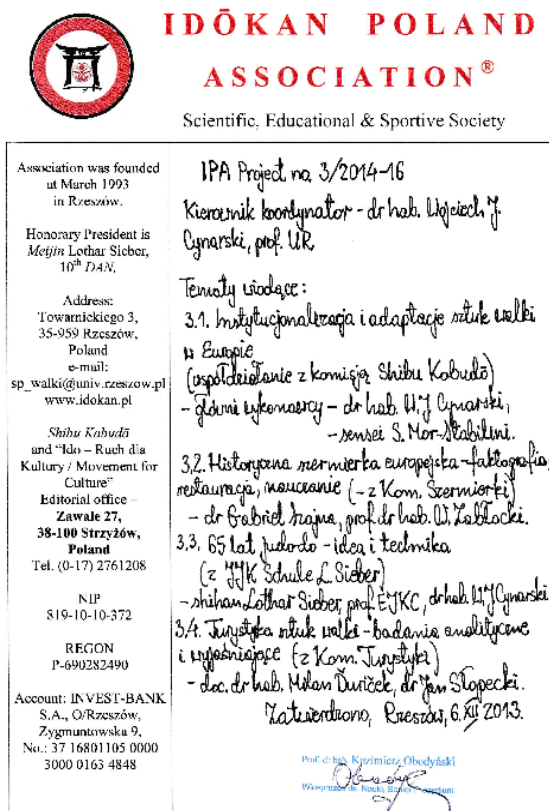 IDŌKAN POLAND
ASSOCIATION®
Scientific, Educational & Sportive Society
Association was founded
at March 1993
in Rzeszów.
Honorary President is
Meijin Lothar Sieber,
10th DAN.
Address:
Towarnickiego 3,
35-959 Rzeszów,
Poland
e-mail:
sp_walki@univ.rzeszow.pl
www.idokan.pl
Shibu Kobudō
and “Ido – Ruch dla
Kultury / Movement for
Culture”
Editorial office –
Zawale 27,
38-100 Strzyżów,
Poland
Tel. (0-17) 2761208
NIP
819-10-10-372
REGON
P-690282490
Account: INVEST-BANK
S.A., O/Rzeszów,
Zygmuntowska 9,
No.: 37 16801105 0000
3000 0163 4848
IPA Project no 3/2014-16
Kierownik koordynator - dr hab. Wojciech J.
Cynarski, prof. UR
Tematy wiodące:
3.1. Instytucjonalizacja i adaptacje sztuk walki
w Europie
(współdziałanie z komisją Shibu Kobudō)
- główni wykonawcy - dr hab. W.J Cynarski,
- sensei S. Mor-Stabilini.
3.2. Historyczna szermierka europejska - faktografia,
restauracja, nauczanie (- z Kom. Szermierki)
- dr Gabriel Szajna, prof. dr hab. W. Zabłocki.
3.3. 65 lat judo-do - idea i technika
(z JJK Schule L. Sieber)
- shihan Lothar Sieber, prof. EJKC, dr hab. W.J Cynarski
3.4. Turystyka sztuk walki - badania analityczne
i wyjaśniające (z Kom. Turystyki)
- doc. dr hab. Milan Ďuríček, dr Jan Słopecki.
Zatwierdzono, Rzeszów, 6.XII 2013.
Prof. dr hab. Kazimierz Obodyński
Wiceprezes ds. Nauki,